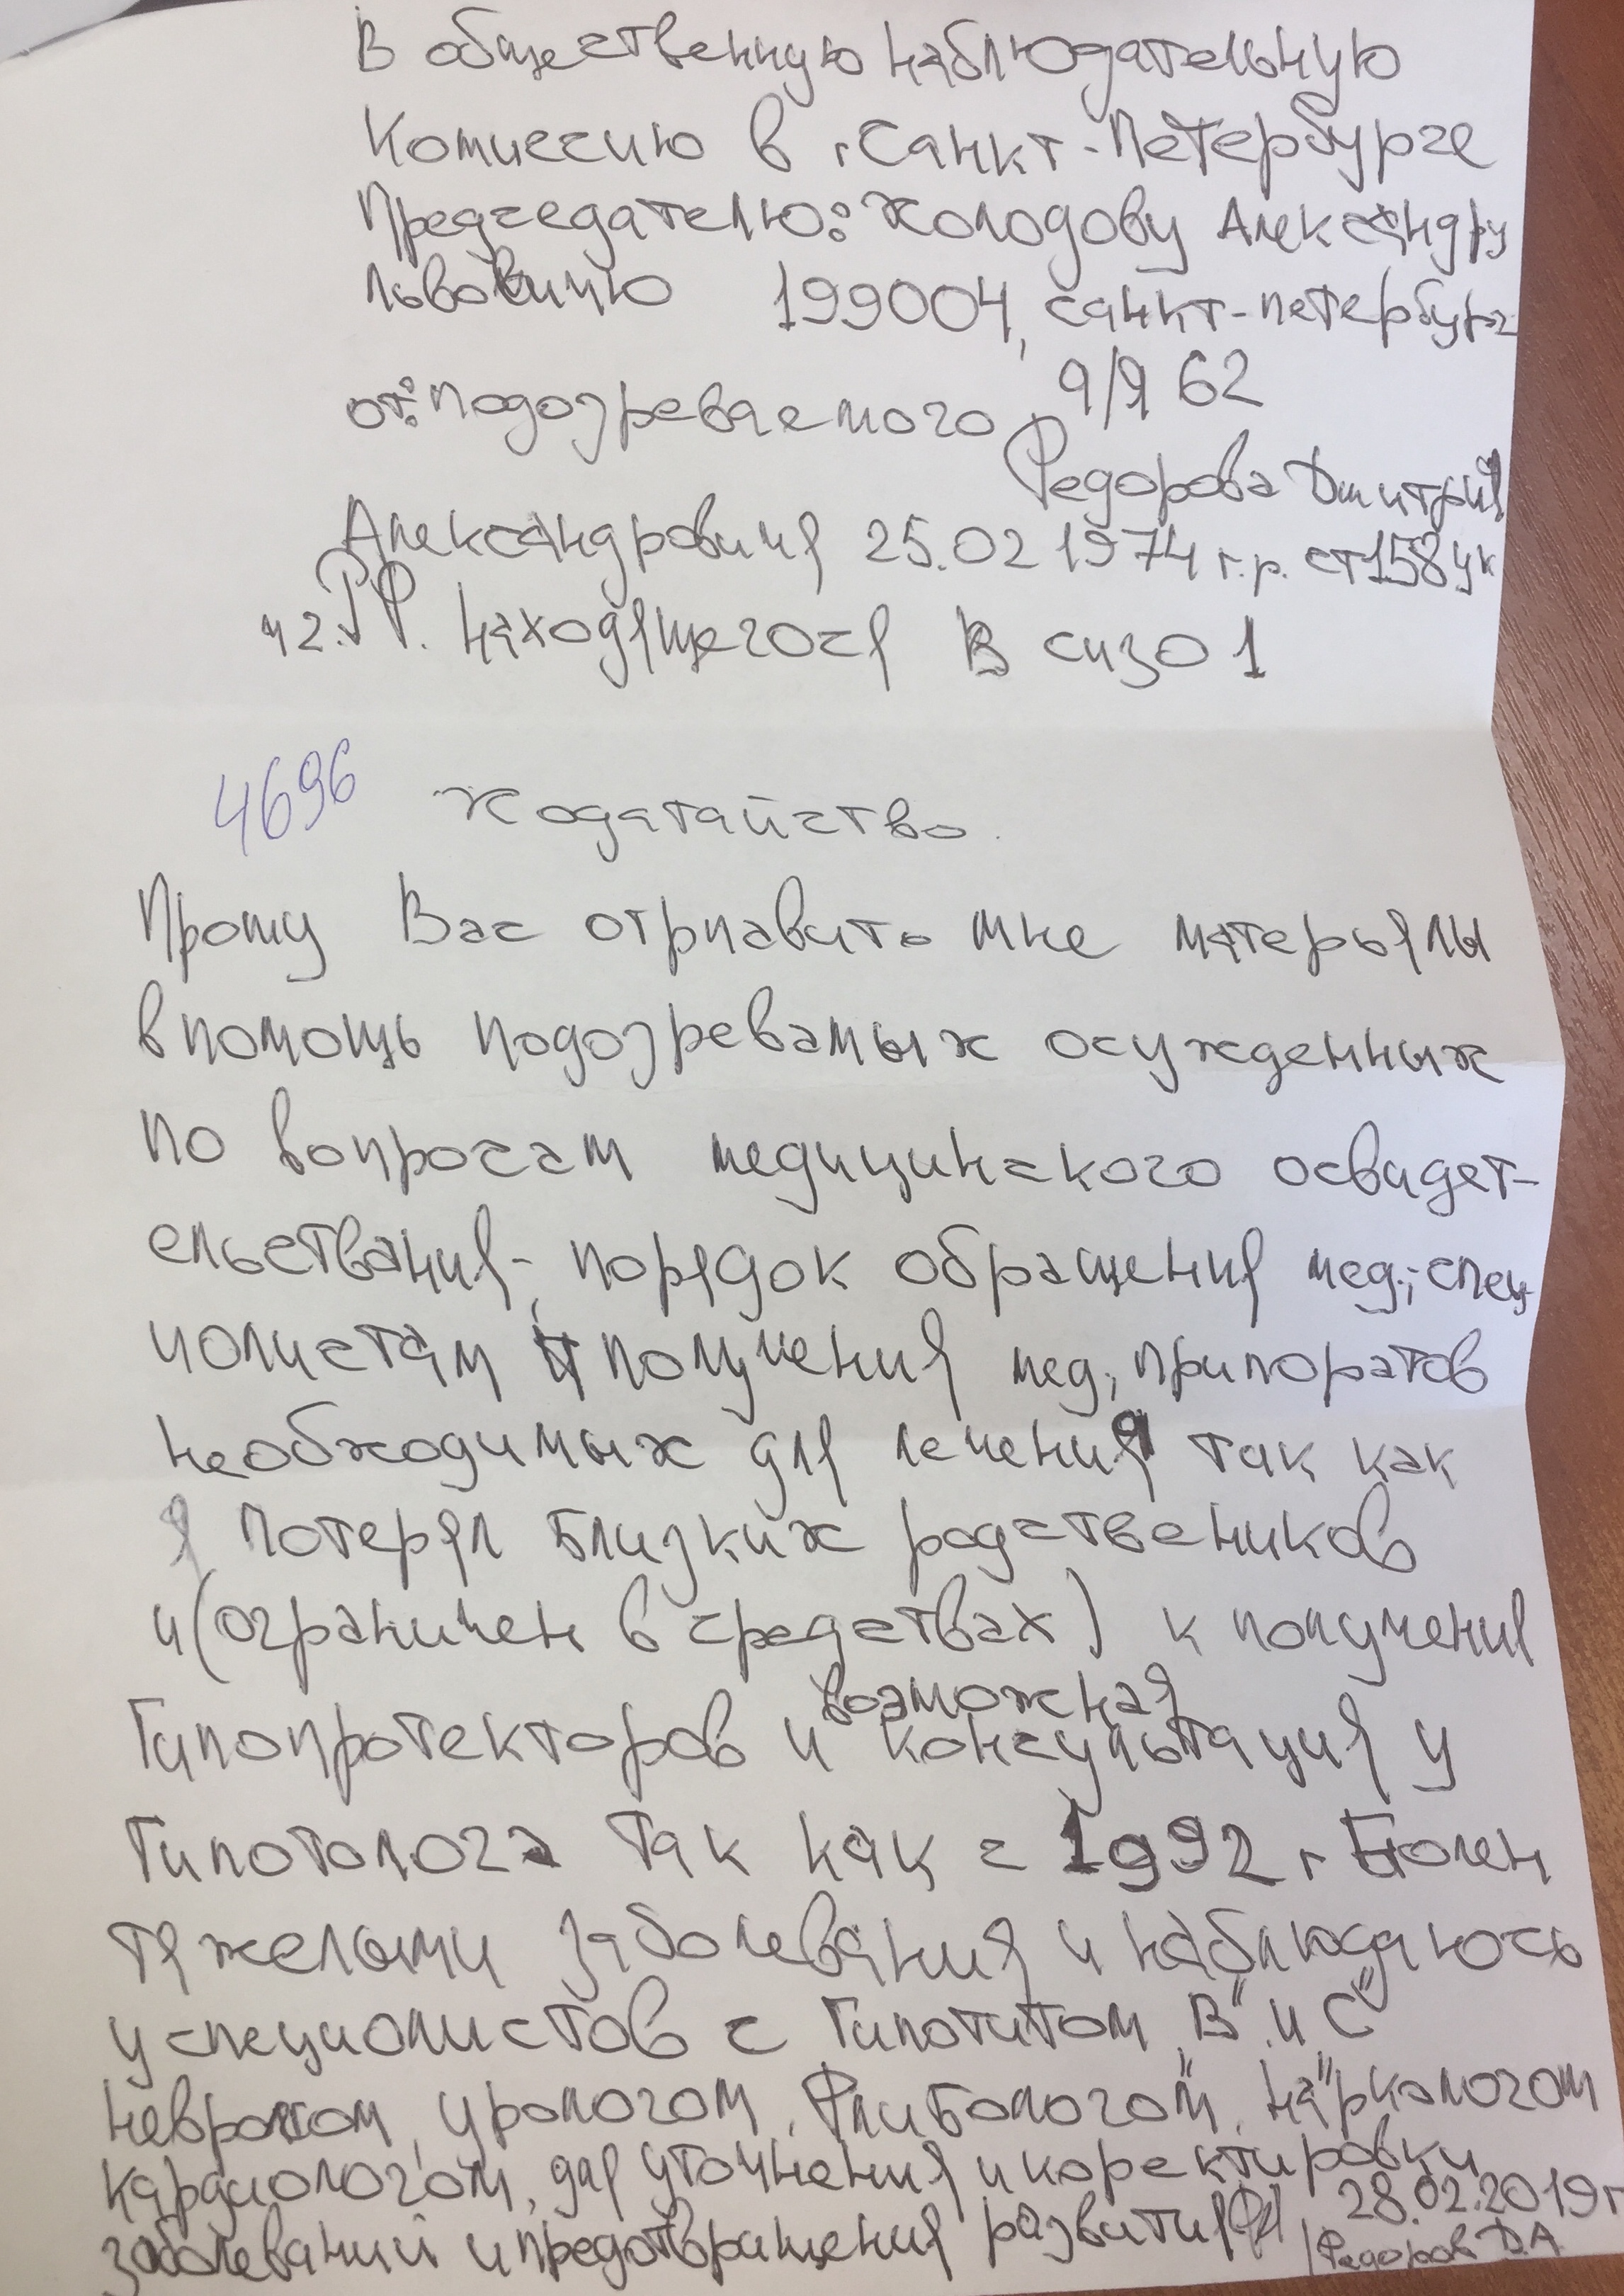 В общественную наблюдательную
Комиссию в г Санкт-Петербурге
Председателю: Холодову Александру
Львовичю 199004, санкт-петербург
а/я 62
от: подозреваемого
Федорова Дмитрия
Александровича 25.02 1974 г.р. ст158 ук
ч2. РФ. находящегося в сизо 1
4696
Ходатайство.
Прошу Вас отрпавить мне матерьялы
в помощь подозревамых осужденных
по вопросам медицинского освидет-
ельствания-, порядок обращения мед.,-спец-
иолистам и получения мед, припоратов
необходимых для лечения так как
я потерял близких родствеников
и (ограничен в средствах) к получения
возможная
Гипопротекторов и консультация у
Гипотолога так как с 1992 г Болен
тяжелыми заболевания и наблюдаюсь
у специолистов с Гипотитом "В" и С"
невролгом, урологом, Флибологом", на"ркологом
кардиологом, для уточнения и коректировки
28.02.2019 г
заболеваний и предотвращения развития
Федоров Д.А